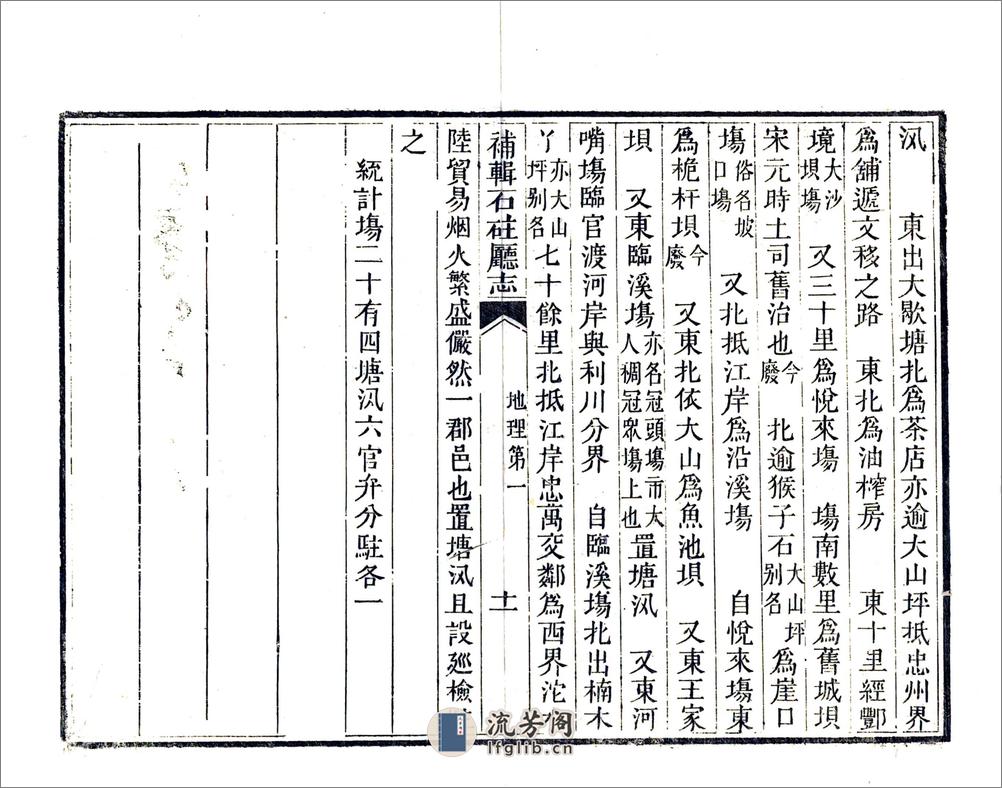 汛　東出大歇塘北爲茶店亦逾大山坪抵忠州界
爲舖遞文移之路　東北爲油榨房　東十里經酆
境大沙壩塲　又三十里爲悅來塲　塲南數里爲舊城壩
宋元時土司舊治也今廢　北逾猴子石大山坪別名爲崖口
塲俗名坡口塲　又北抵江岸爲沿溪塲　自悅來塲東
爲桅杆壩今廢　又東北依大山爲魚池壩　又東王家
壩　又東臨溪塲亦名冠頭塲市大人稠冠眾塲上也置塘汛　又東河
嘴塲臨官渡河岸與利川分界　自臨溪塲北出楠木
丫亦大山坪別名七十餘里北抵江岸忠萬交鄰爲西界沱
補輯石砫廳志　地理第一　十一
陸貿易烟火繁盛儼然一郡邑也置塘汛且設廵檢
之
統計塲二十有四塘汛六官弁分駐各一
流芳阁
lfglib.cn